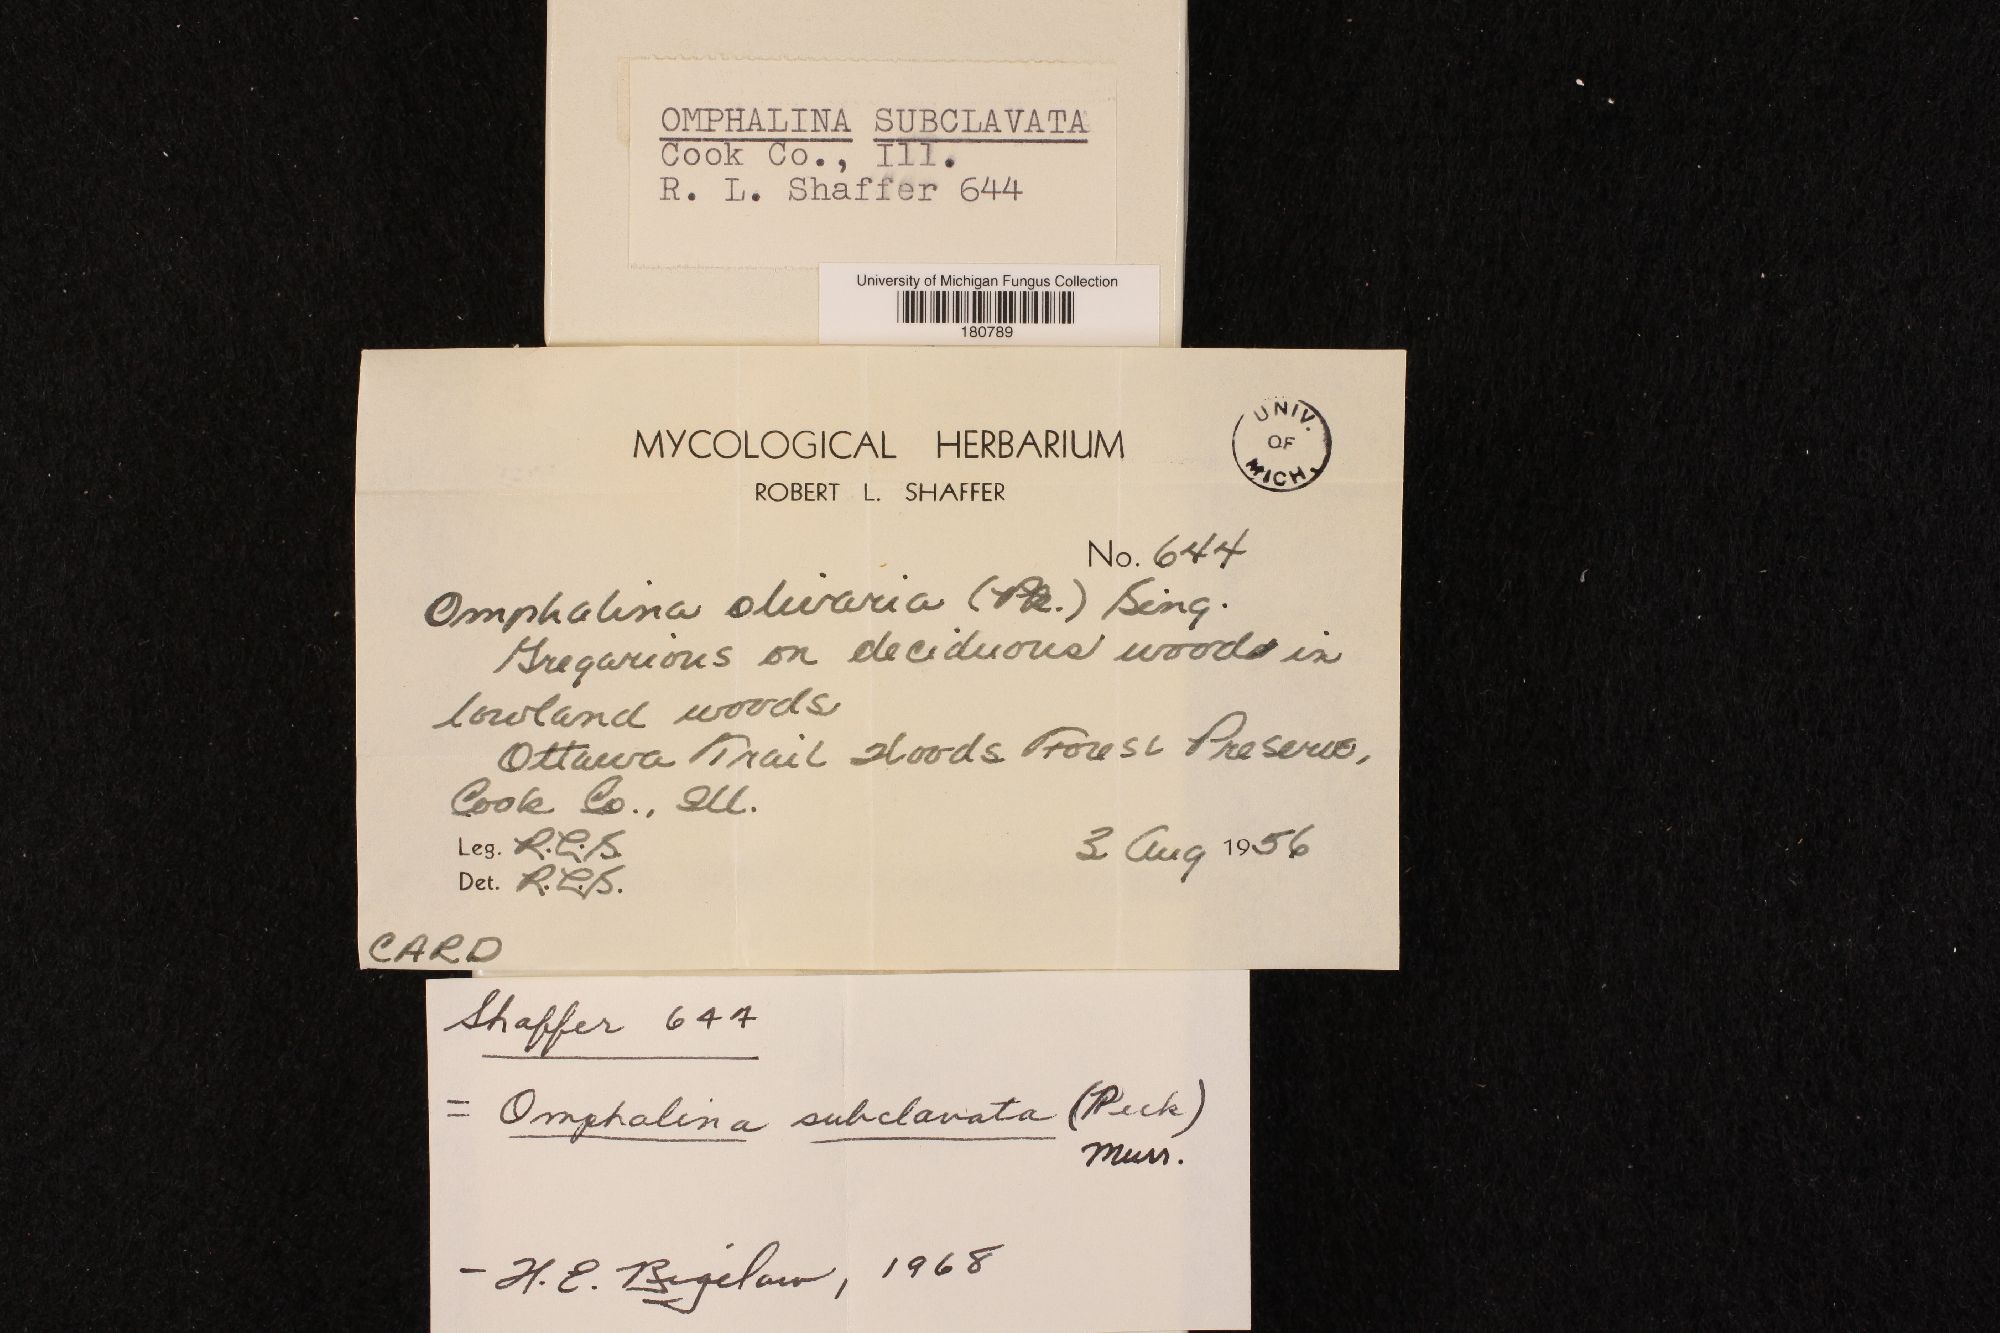 OMPHALINA SUBCLAVATA
Cook Co., Ill.
R. L. Shaffer 644
University of Michigan Fungus Collection
180789
MYCOLOGICAL HERBARIUM
ROBERT L. SHAFFER
UNIV.
OF
MICH.
No. 644
Omphalina olivaria (Pk.) Sing.
Gregarious on deciduous wood in
lowland woods
Ottawa Trail Woods Forest Preserve,
Cook Co., Ill.
Leg. R.L.S.
3 Aug 1956
Det. R.L.S.
CARD
Shaffer 644
= Omphalina subclavata (Peck)
Murr.
- H. E. Bigelow, 1968